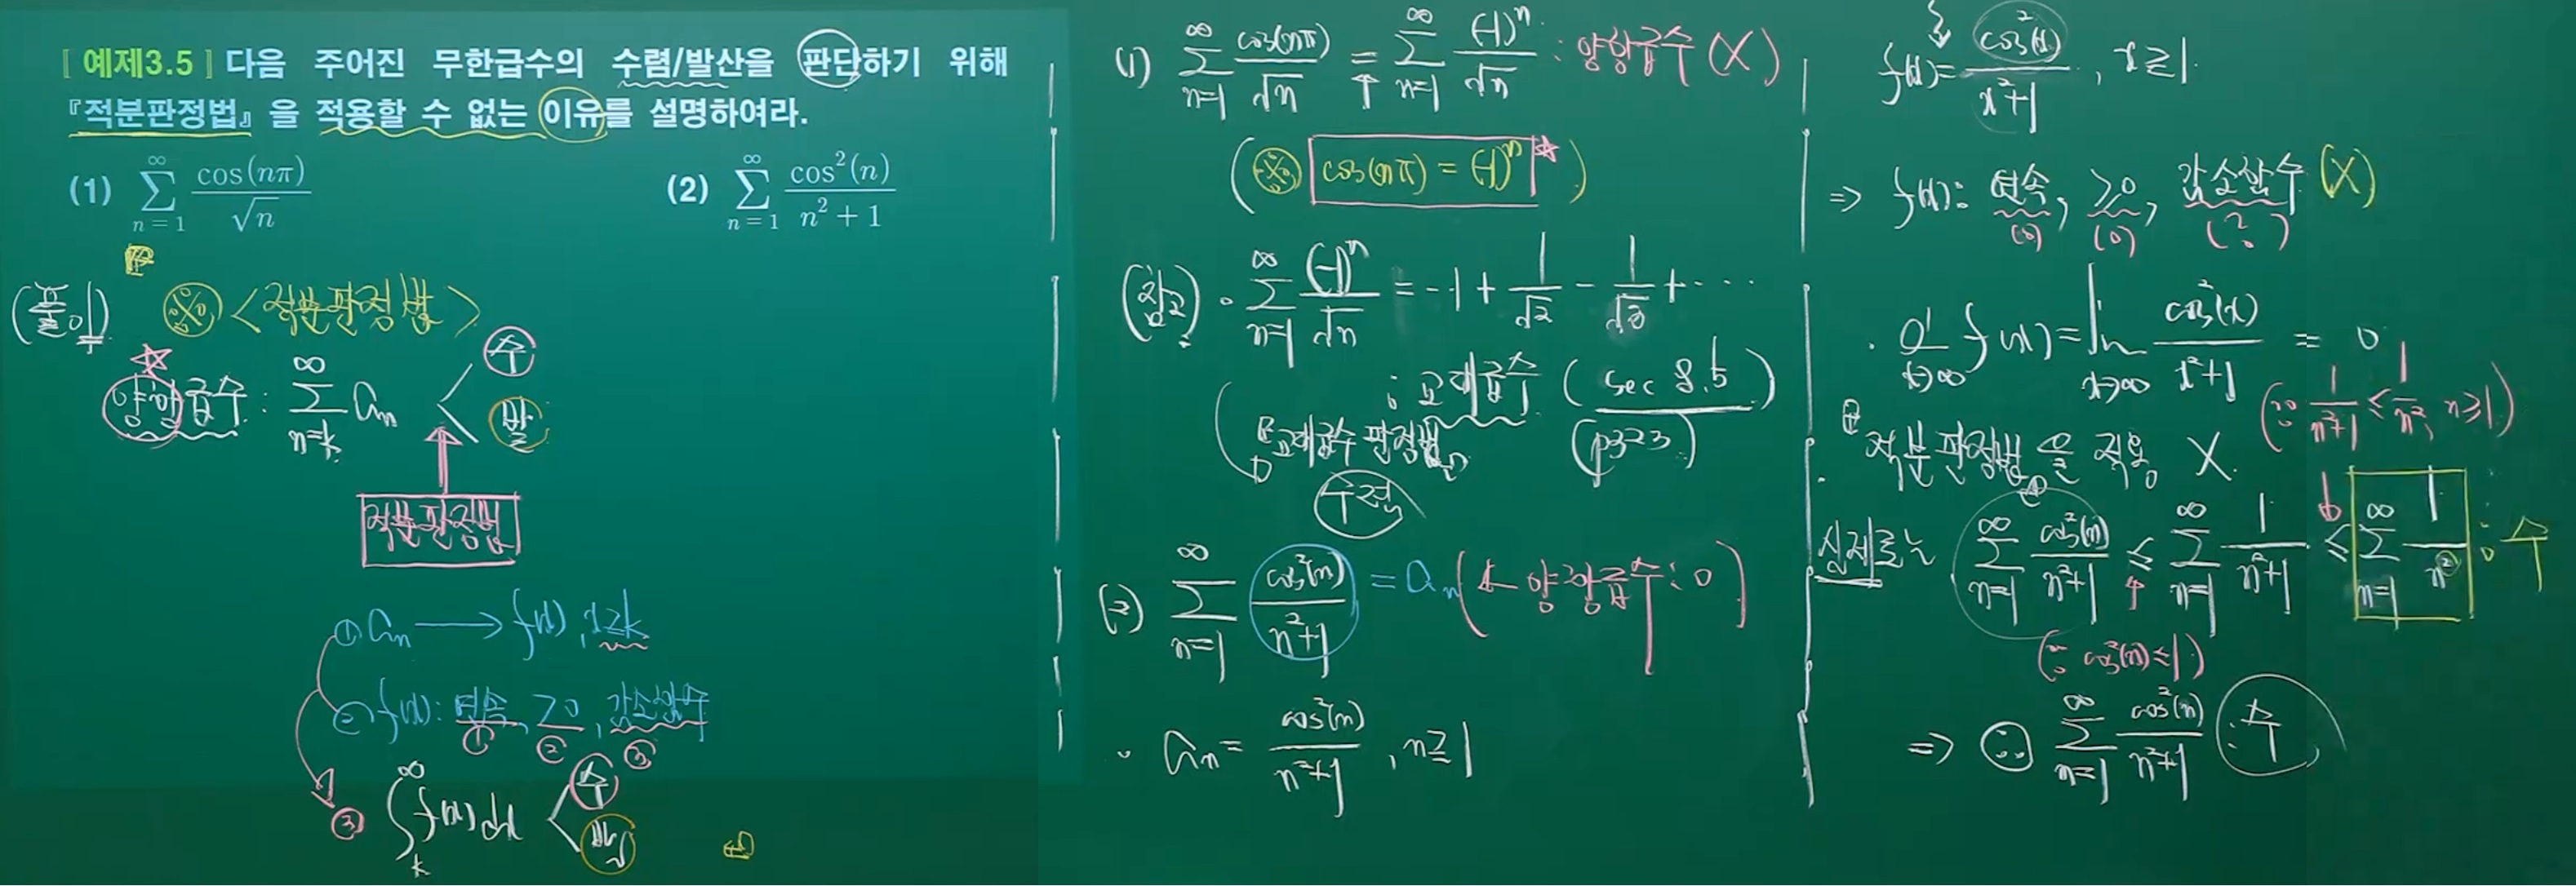 [ 예제3.5 ] 다음 주어진 무한급수의 수렴/발산을 판단하기 위해
『적분판정법』 을 적용할 수 없는 이유를 설명하여라.
(1) $\sum_{n=1}^{\infty} \frac{\cos(n\pi)}{\sqrt{n}}$ (2) $\sum_{n=1}^{\infty} \frac{\cos^2(n)}{n^2+1}$
(풀이) ※ <적분판정법>
양항급수 : $\sum_{n=k}^{\infty} a_n$ < 수
발
적분판정법
① $a_n \longrightarrow f(x), x \geq k$
② $f(x)$ : 연속, $\geq 0$, 감소함수
① ② ③
③ $\int_k^{\infty} f(x)dx$ < 수
발
(1) $\sum_{n=1}^{\infty} \frac{\cos(n\pi)}{\sqrt{n}} = \sum_{n=1}^{\infty} \frac{(-1)^n}{\sqrt{n}}$ : 양항급수 (X)
(※ $\cos(n\pi) = (-1)^n$ )
(참고) · $\sum_{n=1}^{\infty} \frac{(-1)^n}{\sqrt{n}} = -1 + \frac{1}{\sqrt{2}} - \frac{1}{\sqrt{3}} + \cdots$
: 교대급수 (sec 8.5)
교대급수 판정법 (p323)
수렴
(2) $\sum_{n=1}^{\infty} \frac{\cos^2(n)}{n^2+1} = a_n$ (← 양항급수 : 0)
· $a_n = \frac{\cos^2(n)}{n^2+1}, n \geq 1$
$f(x) = \frac{\cos^2(x)}{x^2+1}, x \geq 1$
⇒ $f(x)$ : 연속, $\geq 0$, 감소함수 (X)
(o) (o) (?)
· $\lim_{x \to \infty} f(x) = \lim_{x \to \infty} \frac{\cos^2(x)}{x^2+1} = 0$
(∵ $\frac{1}{n^2+1} \leq \frac{1}{n^2}, n \geq 1$)
· 적분판정법은 적용 X
실제로는 $\sum_{n=1}^{\infty} \frac{\cos^2(n)}{n^2+1} \leq \sum_{n=1}^{\infty} \frac{1}{n^2+1} \leq \sum_{n=1}^{\infty} \frac{1}{n^2}$ : 수
(∵ $\cos^2(n) \leq 1$)
⇒ ∴ $\sum_{n=1}^{\infty} \frac{\cos^2(n)}{n^2+1}$ : 수